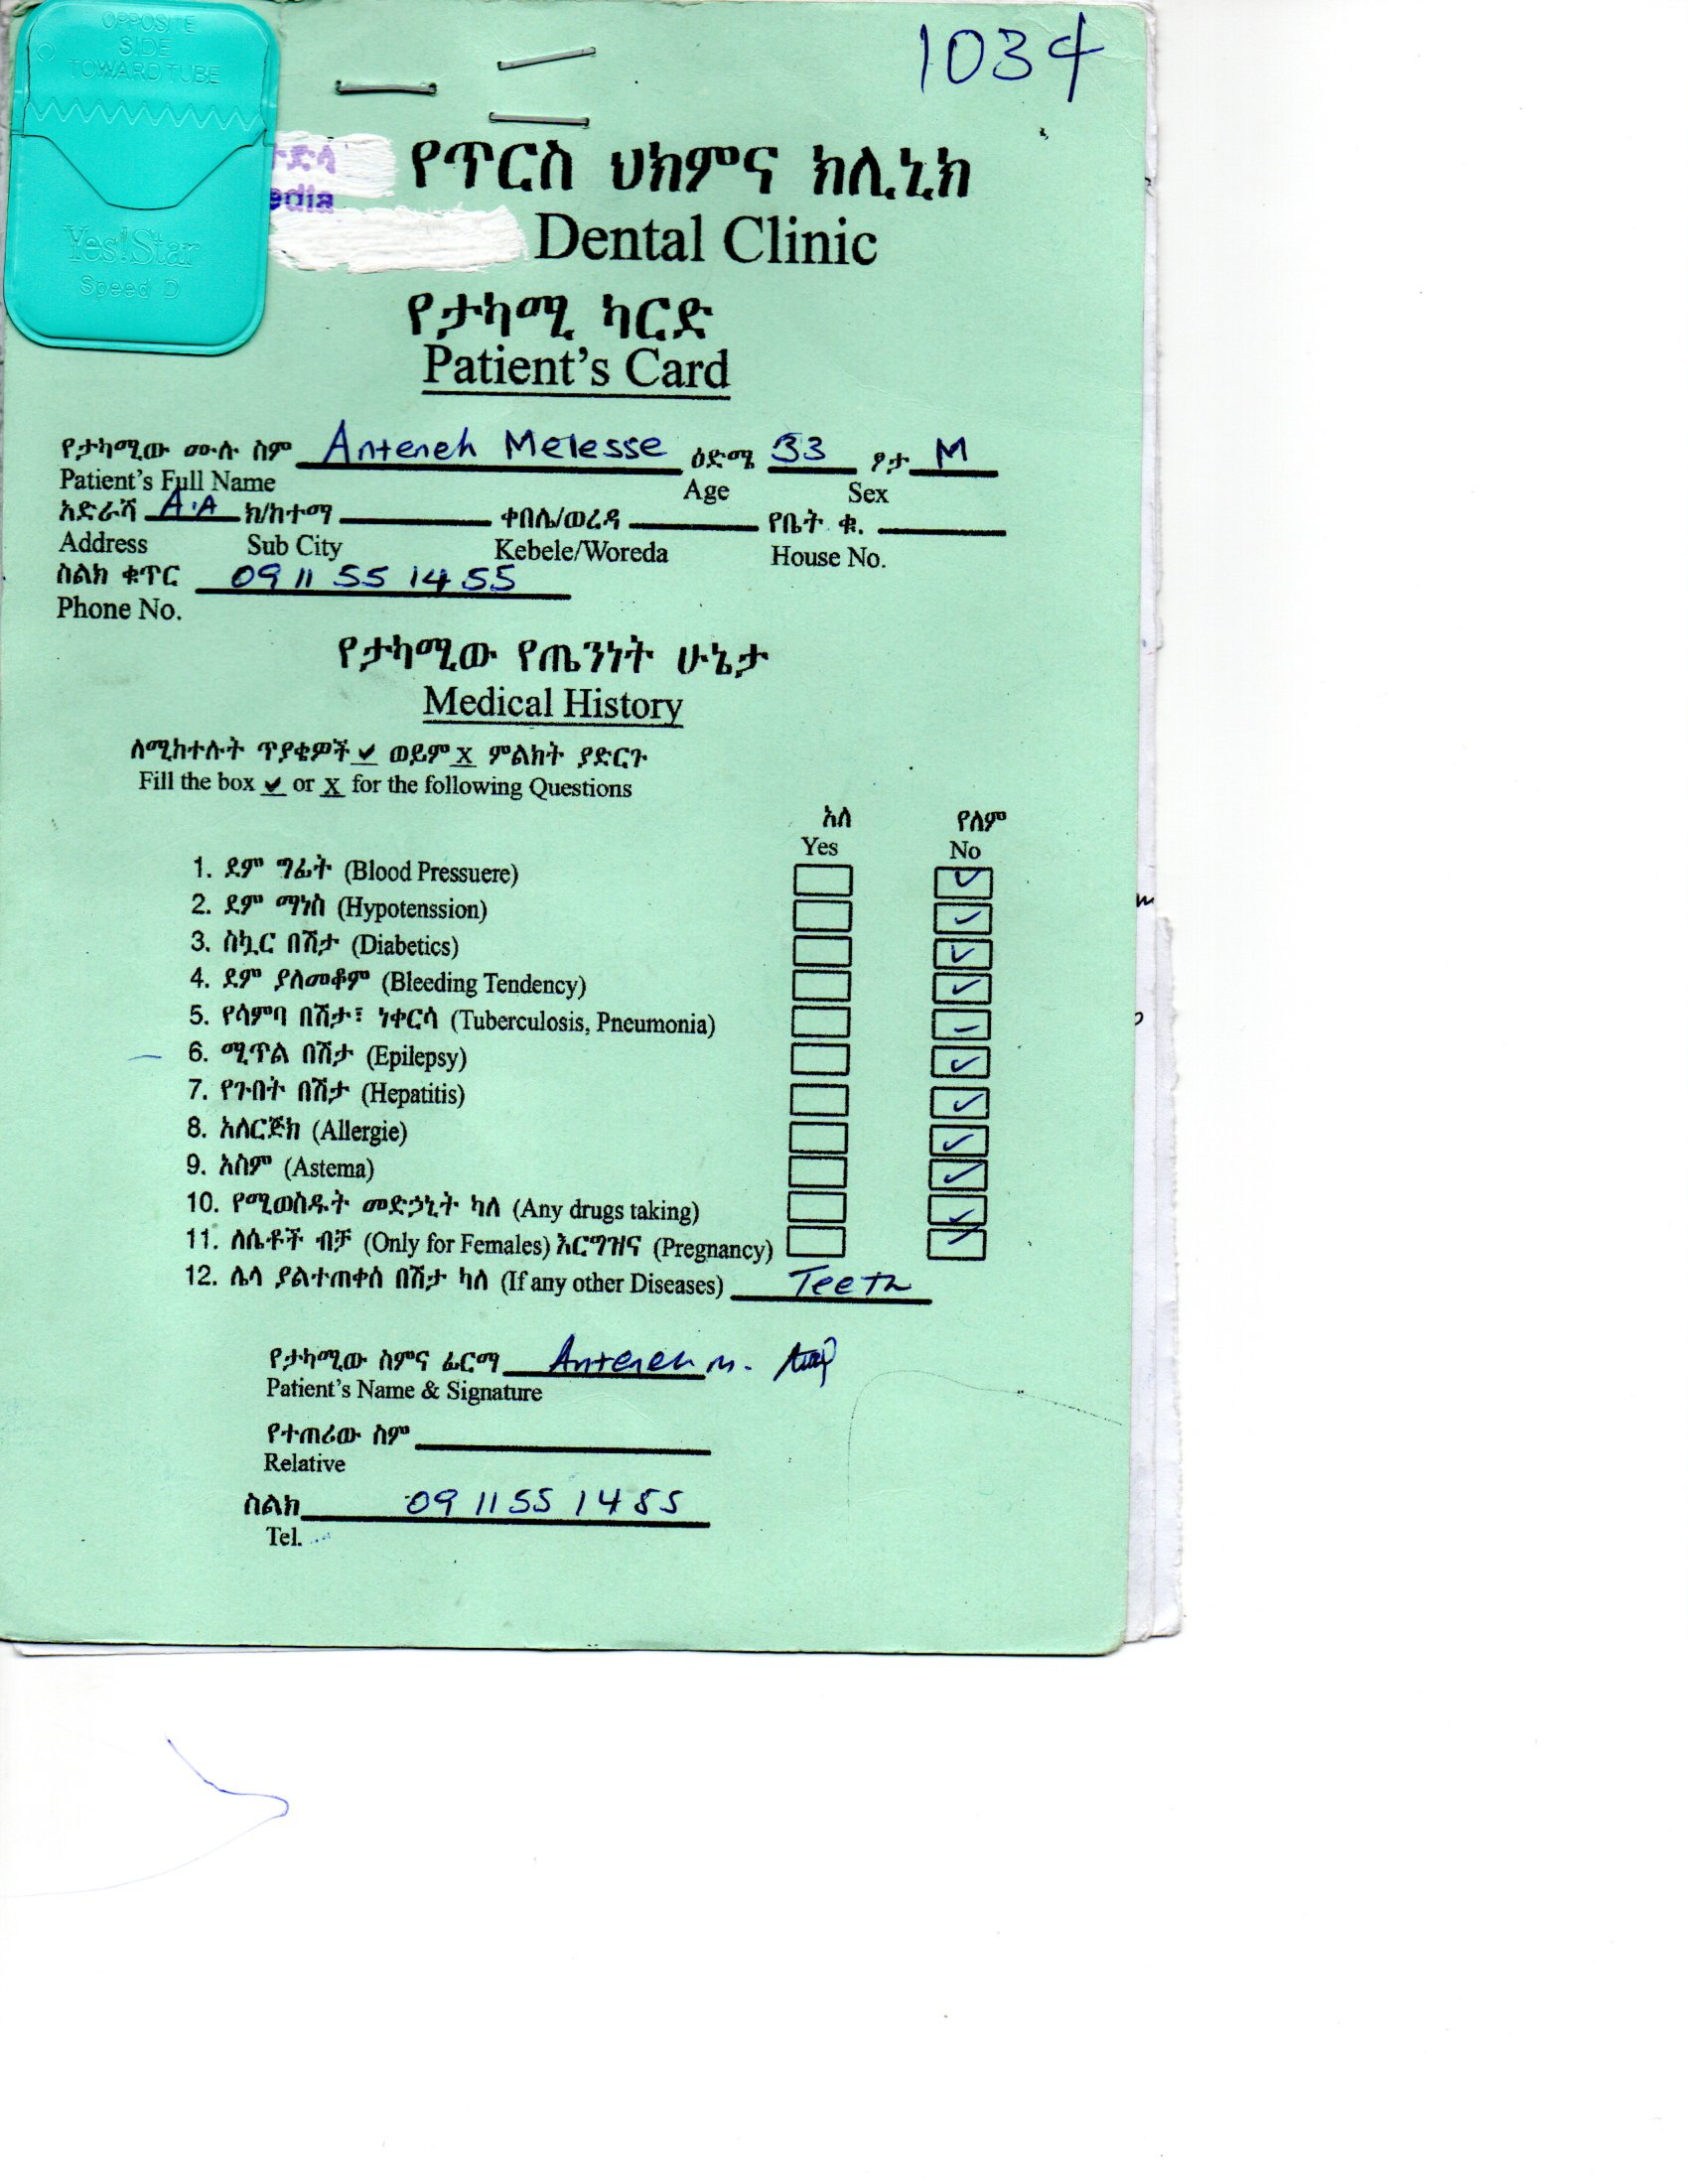 OPPOSITE
SIDE
TOWARD TUBE
Yes!Star
Speed D
1034
edia
የጥርስ ህክምና ክሊኒክ
Dental Clinic
የታካሚ ካርድ
Patient's Card
የታካሚው ሙሉ ስም Anteneh Melesse ዕድሜ 33 ፆታ M
Patient's Full Name Age Sex
አድራሻ A.A ክ/ከተማ ቀበሌ/ወረዳ የቤት ቁ.
Address Sub City Kebele/Woreda House No.
ስልክ ቁጥር 09 11 55 14 55
Phone No.
የታካሚው የጤንነት ሁኔታ
Medical History
ለሚከተሉት ጥያቄዎች ✔ ወይም X ምልክት ያድርጉ
Fill the box ✔ or X for the following Questions
አለ የለም
Yes No
1. ደም ግፊት (Blood Pressuere) ✓
2. ደም ማነስ (Hypotenssion) ✓
3. ስኳር በሽታ (Diabetics) ✓
4. ደም ያለመቆም (Bleeding Tendency) ✓
5. የሳምባ በሽታ፣ ነቀርሳ (Tuberculosis, Pneumonia) –
6. ሚጥል በሽታ (Epilepsy) ✓
7. የጉበት በሽታ (Hepatitis) ✓
8. አለርጅክ (Allergie) ✓
9. አስም (Astema) ✓
10. የሚወስዱት መድኃኒት ካለ (Any drugs taking) ✓
11. ለሴቶች ብቻ (Only for Females) እርግዝና (Pregnancy) ✓
12. ሌላ ያልተጠቀሰ በሽታ ካለ (If any other Diseases) Teeth
የታካሚው ስምና ፊርማ Anteneh M.
Patient's Name & Signature
የተጠሪው ስም
Relative
ስልክ 09 11 55 14 55
Tel.